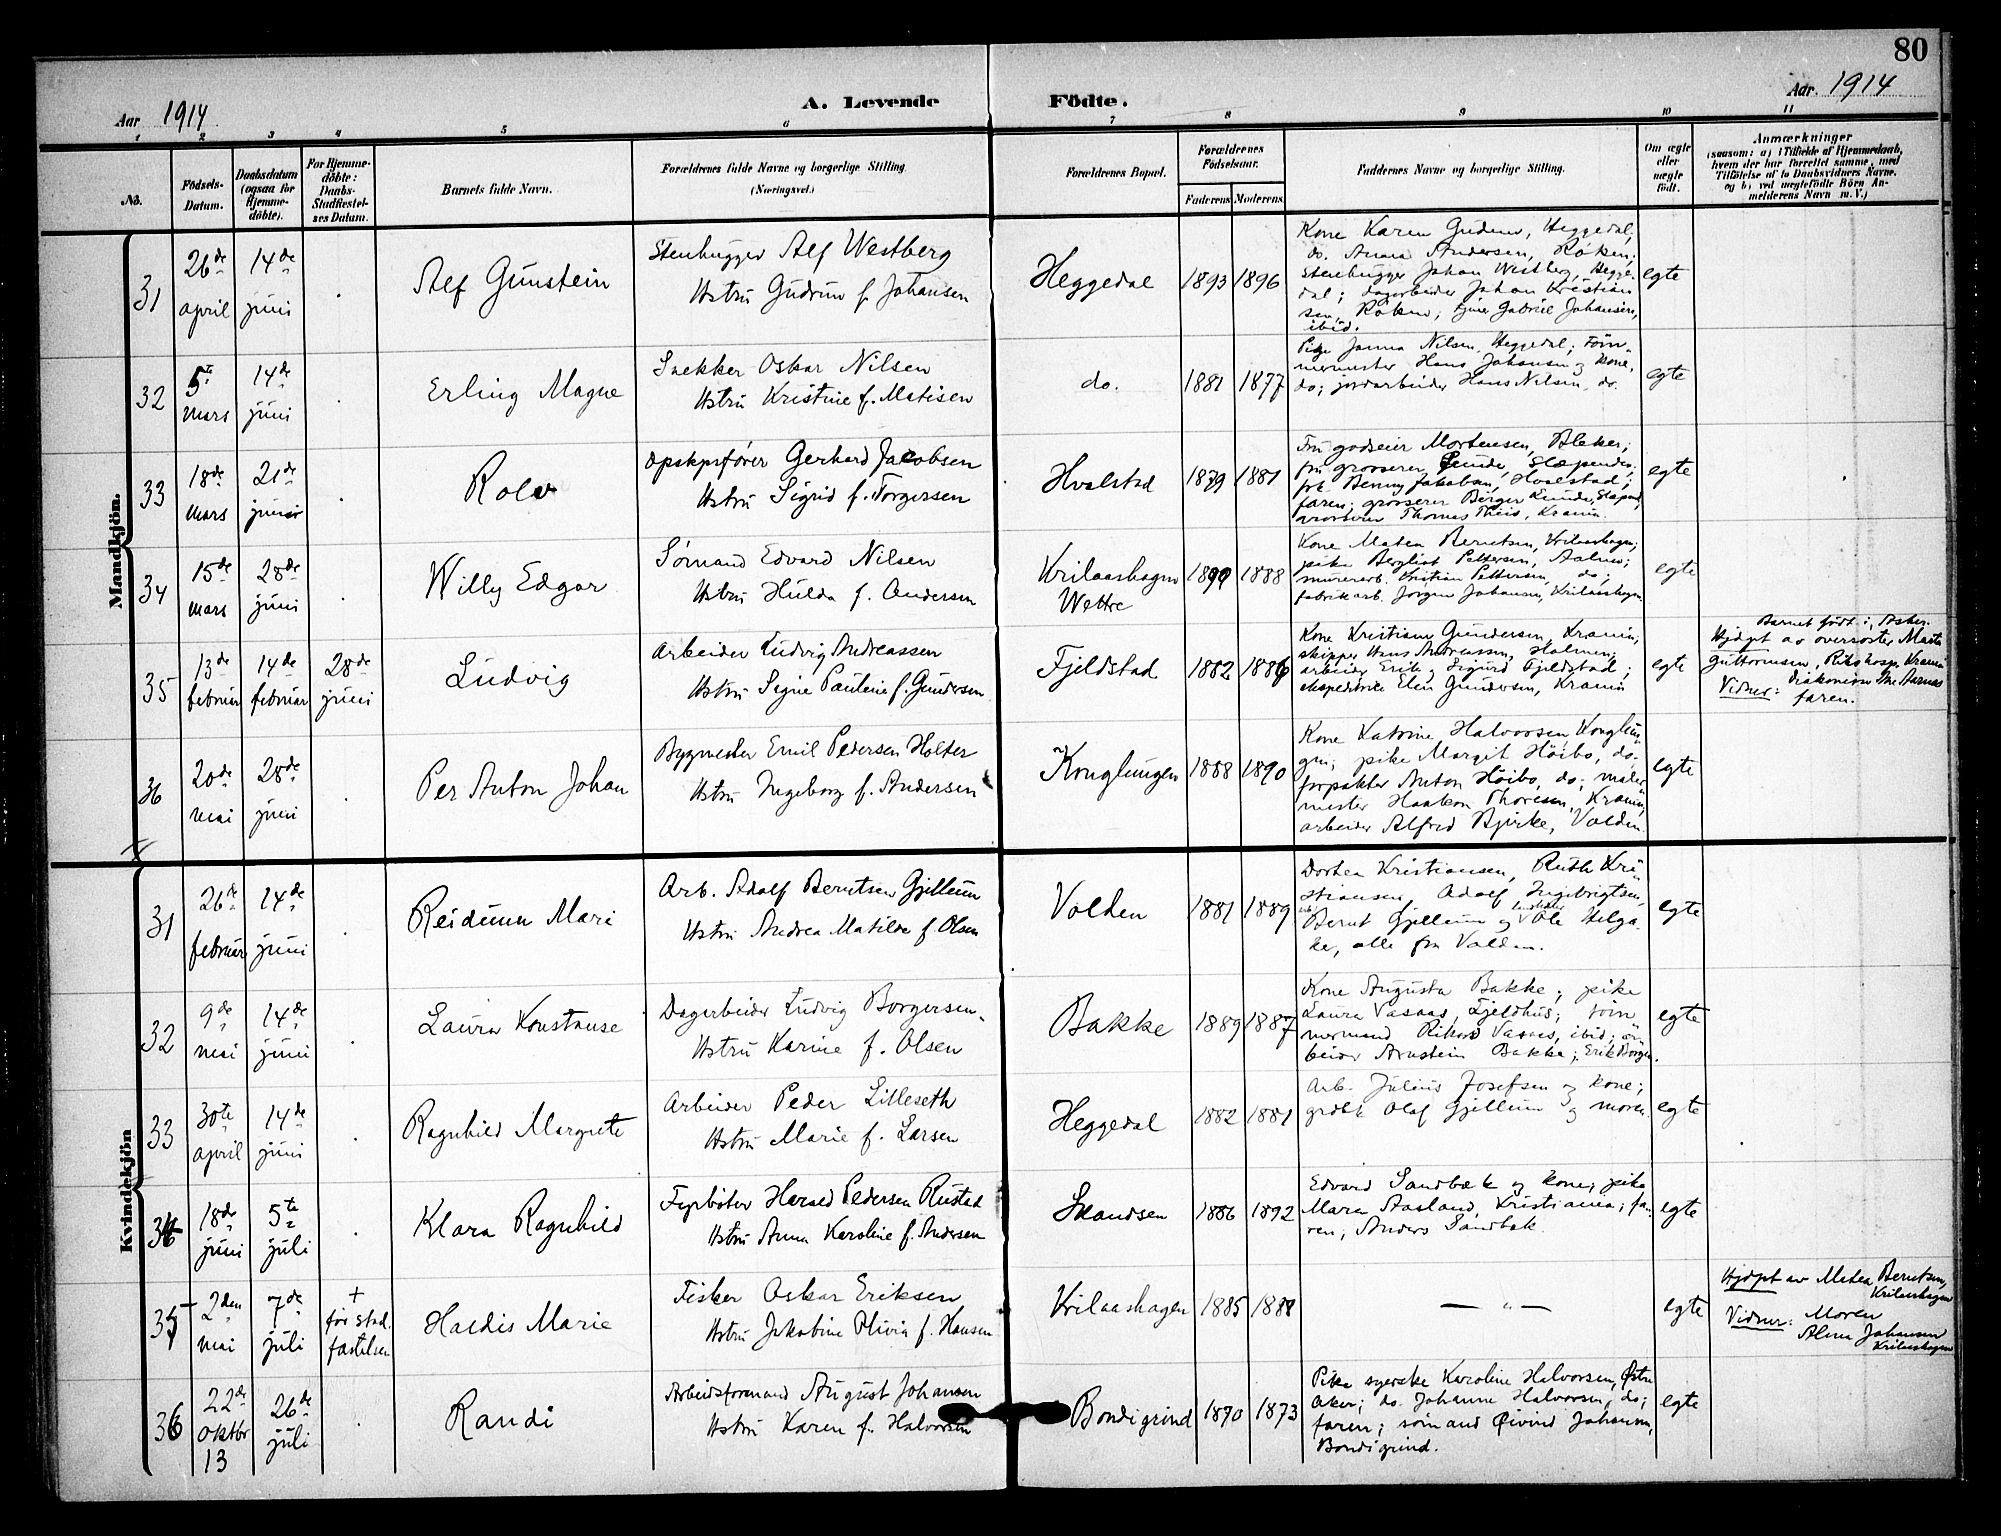 80
Aar 1914
A. Levende
Födte.
Aar 1914
1 2 3 4 5 6 7 8 9 10 11
No.
Födsels-
Datum.
Daabsdatum
(ogsaa for
Hjemme-
döbte).
For Hjemme-
döbte:
Daabs-
Stadfæstel-
ses Datum.
Barnets fulde Navn.
Forældrenes fulde Navne og borgerlige Stilling
(Næringsvei.)
Forældrenes Bopæl.
Forældrenes
Födselsaar.
Faderens Moderens
Faddernes Navne og borgerlige Stilling.
Om ægte
eller
uægte
födt.
Anmærkninger
(saasom: a) i Tilfælde af Hjemmedaab,
hvem der har forrettet samme, med
Tilföielse af to Daabsvidners Navne.
og b) ved uægtefödte Börn An-
melderens Navn m. V.)
Mandkjön.
31
26de
april
14de
juni
Alf Gunstein
Stenhugger Alf Westberg
Hstru Gudrun f. Johansen
Heggedal
1893 1896
Kone Karen Gudem, Heggedal;
do. Anna Andersen, Röken;
stenhugger Johan Westberg, Hegge-
dal; dagarbeider Johan Kristian
sen, Röken; Gabriel Johansen,
ibid.
egte
32
5te
mars
14de
juni
Erling Magne
Snekker Oskar Nilsen
Hstru Kristine f. Matisen
do.
1881 1877
Pige Janna Nilsen, Heggedal; Töm-
mermester Hans Johansen og kone,
do; jordarbeider Hans Nilsen, do.
egte
33
18de
mars
21de
juni
Rolv
Opskpsfører Gerhard Jacobsen
Hstru Sigrid f. Torgersen
Hvalstad
1879 1881
Fru godseier Mortensen, Bleker;
fru grosserer Lunde, Slæpenden;
frk. Benny Jakobsen, Hvalstad;
faren; grosserer Birger Lunde,
grosserer Thomas Theis, Krania.
egte
34
15de
mars
28de
juni
Willy Edgar
Sømand Edvard Nilsen
Hstru Hulda f. Andersen
Krilaashagen
Wettre
1888
Kone Matea Berntsen, Krilaashagen;
pike Bergliot Pettersen,
murerarb. Kristian Pettersen, do;
fabrikarb. Jørgen Johansen, Krilaashagn.
egte
35
13de
februar
14de
februar
28de
juni
Ludvig
Arbeider Ludvig Andreassen
Hstru Signe Pauline f. Gundersen
Fjeldstad
1882 1886
Kone Kristiane Gundersen, Krania;
skipper Hans Andreassen, Holmen;
arbeider Erik og Sigurd Fjeldstad;
ekspeditrice Elen Gundersen, Krania
egte
Barnet født i Asker.
Hjdøpt av oversøster Marta
Guttormsen, Rikshosp. Krania
Vidner:
faren.
36
20de
mai
28de
juni
Per Anton Johan
Bygmester Emil Pedersen Holter
Hstru Ingeborg f. Andersen
Konglungen
1888 1890
Kone Katrine Halvorsen Konglun-
gen; pike Margit Höibo, do;
forpakter Anton Höibo, do; maler
mester Haakon Thoresen, Krania;
arbeider Alfred Bjerke, Valden.
egte
Kvindekjön
31
26de
februar
14de
juni
Reidunn Mari
Arb. Adolf Berntsen Gjellum
Hstru Andrea Matilde f. Olsen
Volden
1881 1889
Dorthea Kristiansen, Ruth Kri-
stiansen, Adolf Ingebrigtsen,
Bernt Gjellum og Ole Helga-
ker, alle fra Valden.
egte
32
9de
mai
14de
juni
Laura Konstanse
Dagarbeider Ludvig Borgersen.
Hstru Karine f. Olsen
Bakke
1889 1887
Kone Augusta Bakke; pike
Laura Vasaas, Fjeldhus; töm
mermand Rikard Vasaas, ibid; ar-
beider Arnstein Bakke; Erik Borgen.
egte
33
30te
april
14de
juni
Ragnhild Margrete
Arbeider Peder Lilleseth
Hstru Marie f. Larsen
Heggedal
1882 1881
Arb. Julius Josefsen og kone;
grdbr Olaf Gjellum og moren.
egte
34
18de
juni
5te
juli
Klara Ragnhild
Fyrbøter Harald Pedersen Rustad
Hstru Anna Karoline f. Andersen
Skandsen
1886 1892
Edvard Sandbæk og kone; pike
Mara Aasland, Kristiania; fa-
ren; Anders Sandbæk.
egte
35
2den
mai
7de
juli
+
før stad.
fæstelsen
Haldis Marie
Fisker Oskar Eriksen
Hstru Jakobine Olivia f. Hansen
Krilaashagen
1885 1888
— " —
egte
Hjdøpt av Matea Berntsen,
Krilaashagen
Vidner: Moren
Alma Johansen
Krilaashagen
36
22de
oktbr
13
26de
juli
Randi
Arbeidsformand August Johansen
Hstru Karen f. Halvorsen
Bondigrind
1870 1873
Pike syerske Karoline Halvorsen, Östre
Aker; do. Johanne Halvorsen, do;
faren; sömand Öivind Johansen,
Bondigrind.
egte